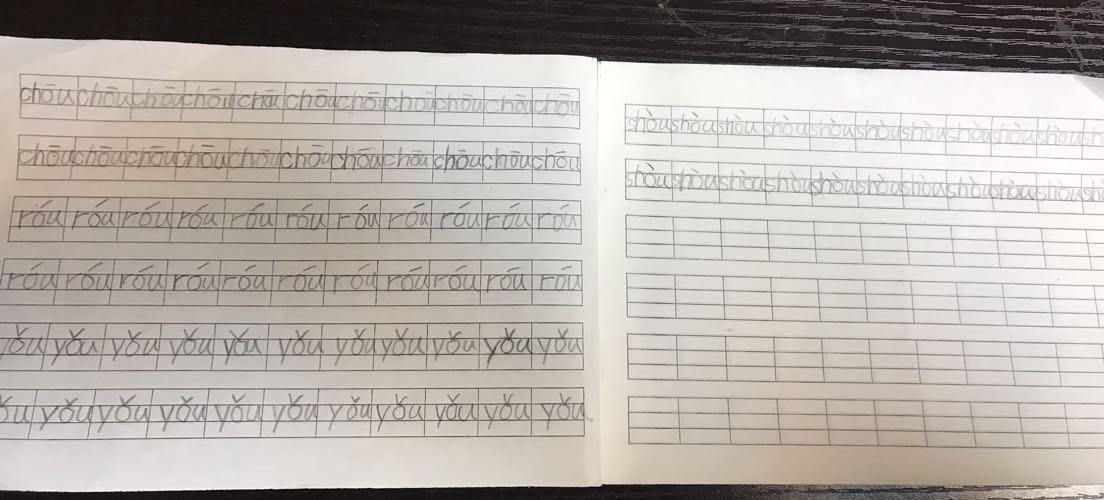 chōu chōu chōu chōu chōu chōu chōu chōu chōu chōu chōu
chōu chōu chōu chōu chōu chōu chōu chōu chōu chōu chōu
róu róu róu róu róu róu róu róu róu róu róu
róu róu róu róu róu róu róu róu róu róu róu
yǒu yǒu yǒu yǒu yǒu yǒu yǒu yǒu yǒu yǒu
yǒu yǒu yǒu yǒu yǒu yǒu yǒu yǒu yǒu yǒu
shòu shòu shòu shòu shòu shòu shòu shòu shòu shòu
shòu shòu shòu shòu shòu shòu shòu shòu shòu shòu